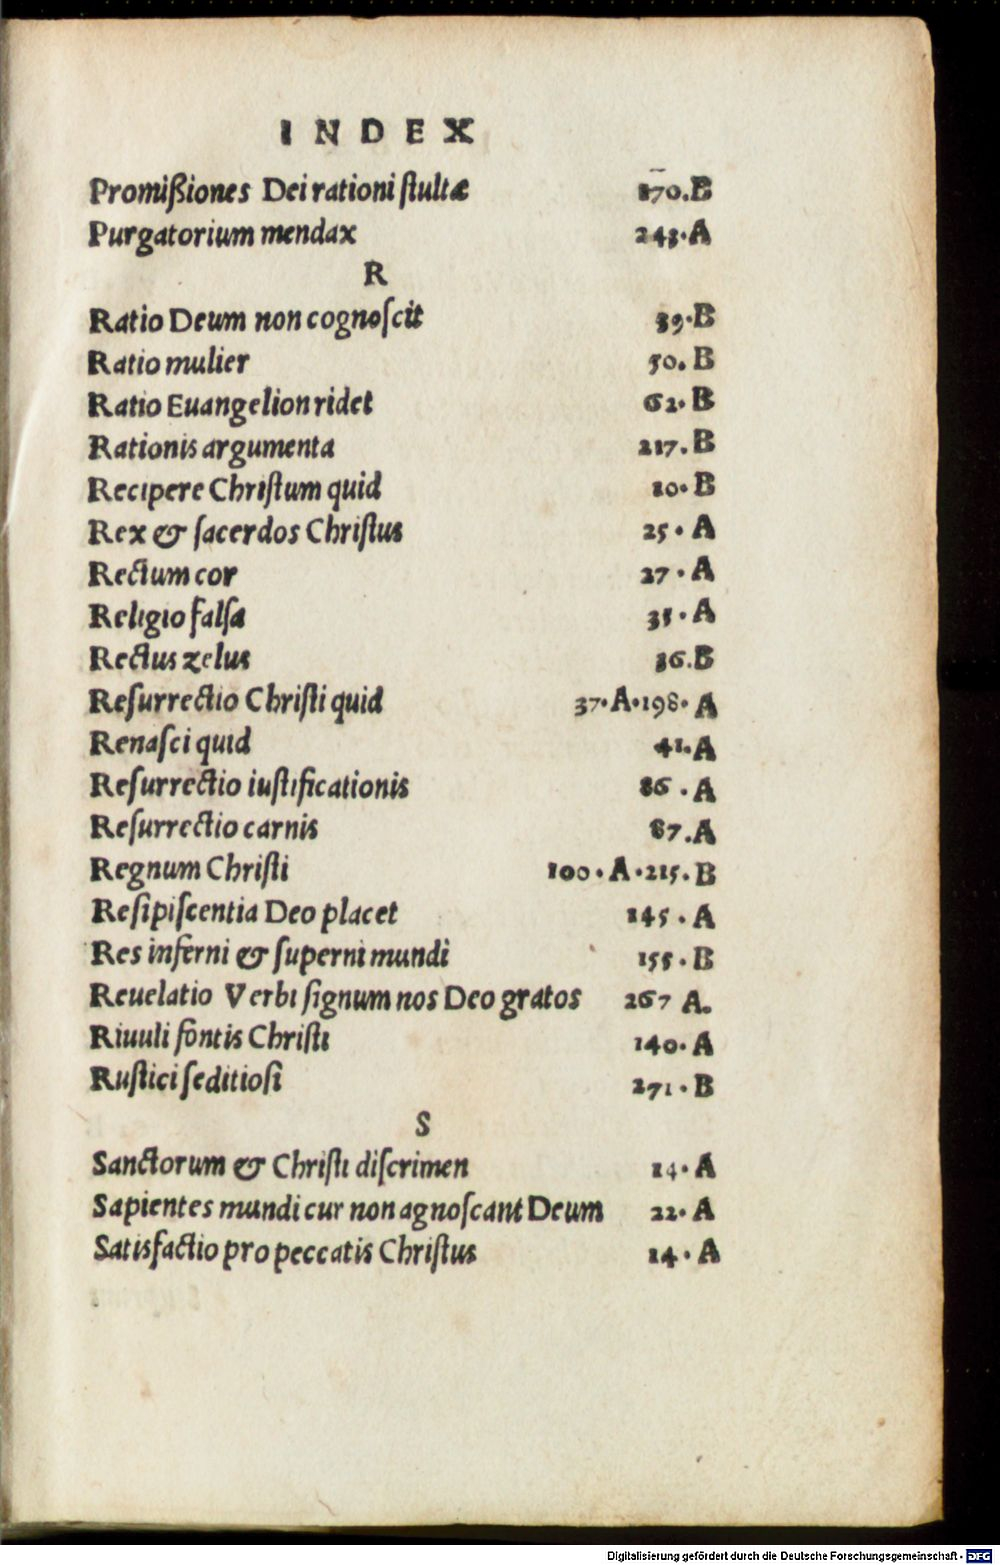 INDEX
Promißiones Dei rationi ſtultæ 170.B
Purgatorium mendax 243.A
R
Ratio Deum non cognoſcit 39.B
Ratio mulier 50.B
Ratio Euangelion ridet 62.B
Rationis argumenta 217.B
Recipere Chriſtum quid 10.B
Rex & ſacerdos Chriſtus 25.A
Rectum cor 27.A
Religio falſa 35.A
Rectus zelus 36.B
Reſurrectio Chriſti quid 37.A.198.A
Renaſci quid 41.A
Reſurrectio iuſtificationis 86.A
Reſurrectio carnis 87.A
Regnum Chriſti 100.A.215.B
Reſipiſcentia Deo placet 145.A
Res inferni & ſuperni mundi 155.B
Reuelatio Verbi ſignum nos Deo gratos 267 A.
Riuuli fontis Chriſti 140.A
Ruſtici ſeditioſi 271.B
S
Sanctorum & Chriſti diſcrimen 14.A
Sapientes mundi cur non agnoſcant Deum 22.A
Satisfactio pro peccatis Chriſtus 14.A
Digitalisierung gefördert durch die Deutsche Forschungsgemeinschaft - DFG